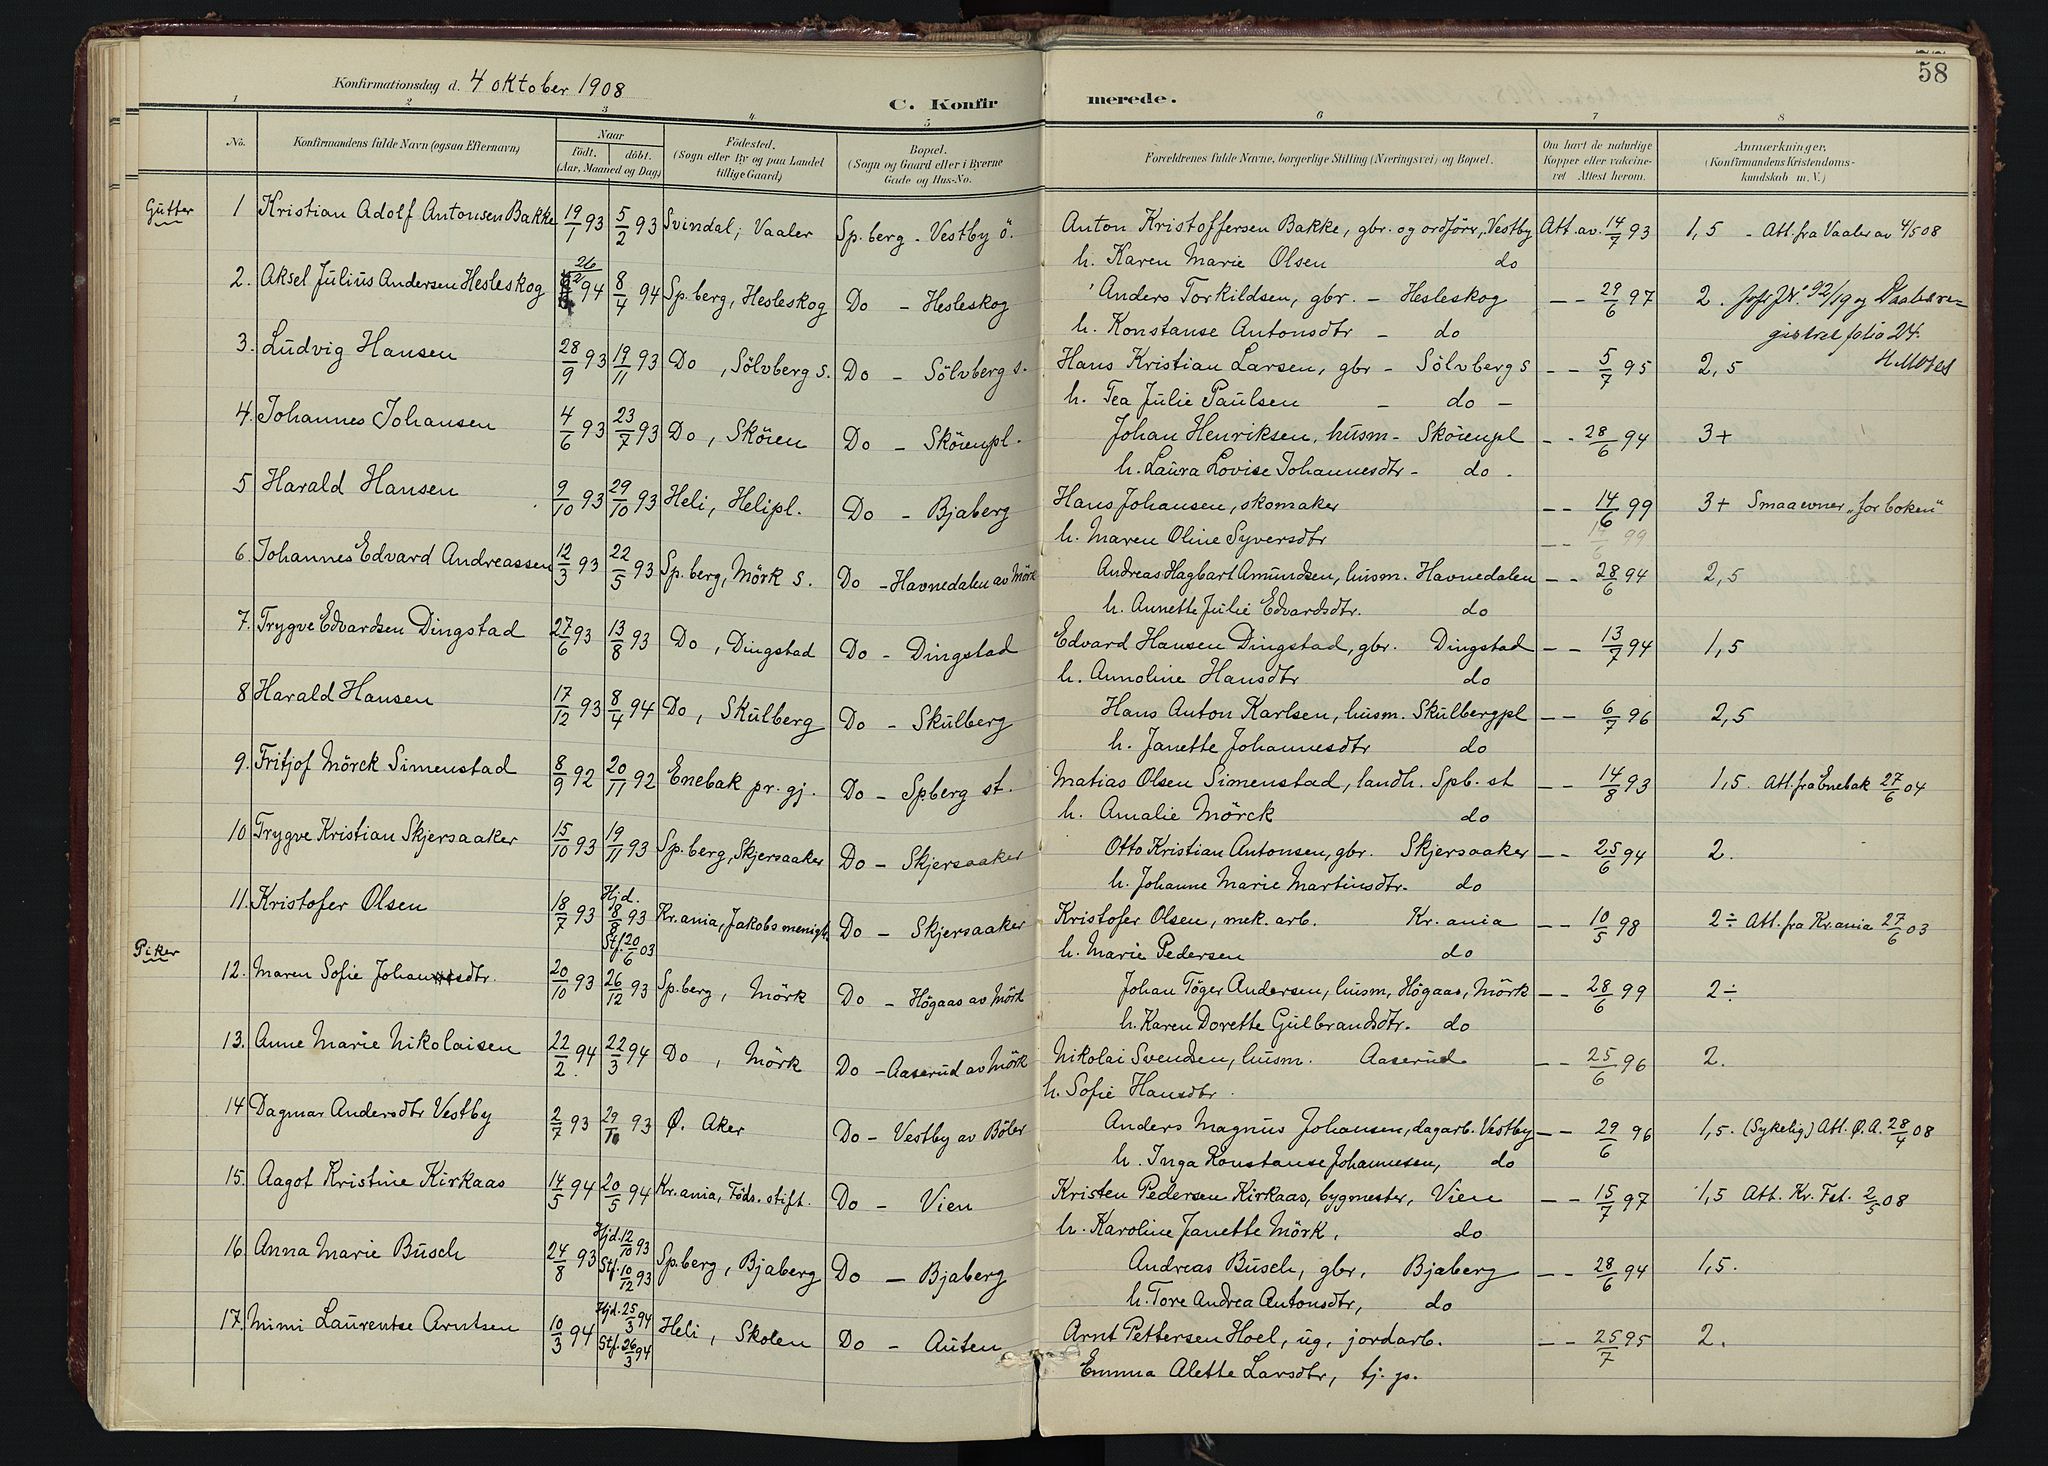 58
Konfirmationsdag d. 4 oktober 1908
C. Konfirmerede.
1 2 3 4 5 6 7 8
No. | Konfirmandens fulde Navn (ogsaa Efternavn) | Naar født. døbt. (Aar, Maaned og Dag) | Födested. (Sogn eller By og paa Landet tillige Gaard) | Bopæl. (Sogn og Gaard eller i Byerne Gade og Hus-No. | Forældrenes fulde Navne, borgerlige Stilling (Næringsvei) og Bopæl. | Om havt de naturlige Kopper eller vakcineret Attest herom. | Anmærkninger. (Konfirmandens Kristendomskundskab m. V.)
Gutter
1 Kristian Adolf Antonsen Bakke 19/1 93 5/2 93 Svindal, Vaaler Sp.berg - Vestby ö. Anton Kristoffersen Bakke, gbr. og ordförer, Vestby Att. av. 14/7 93 1,5 - Att. fra Vaaler av 4/5 08
h. Karen Marie Olsen do
2. Aksel Julius Andersen Hesleskog 26/2 94 8/4 94 Sp.berg, Hesleskog Do - Hesleskog Anders Torkildsen, gbr. - Hesleskog - - 29/6 97 2. Jofr JN.° 92/19 og Daabsre=
h. Konstanse Antonsdtr - do gistret folio 24.
3. Ludvig Hansen 28/9 93 19/11 93 Do, Sölvberg s. Do - Sölvberg s. Hans Kristian Larsen, gbr - Sölvberg s - - 5/7 95 2,5
h. Tea Julie Paulsen - do -
4. Johannes Johansen 4/6 93 23/7 93 Do, Sköien Do - Sköienpl. Johan Henriksen, husm - Sköienpl - - 28/6 94 3+
h. Laura Lovise Johannesdtr - do -
5 Harald Hansen 9/10 93 29/10 93 Heli, Helipl. Do - Bjaberg Hans Johansen, skomaker - - 14/6 99 3+ Smaa evner "for boken"
h. Maren Oline Syversdtr - - 14/6 99
6. Johannes Edvard Andreassen 12/3 93 22/5 93 Sp.berg, Mörk s. Do - Havnedalen av Mörk Andreas Hagbart Amundsen, husm. Havnedalen - - 28/6 94 2,5
h. Annette Julie Edvardsdtr. do
7. Trygve Edvardsen Dingstad 27/6 93 13/8 93 Do, Dingstad Do - Dingstad Edvard Hansen Dingstad, gbr. Dingstad - - 13/7 94 1,5
h. Annoline Hansdtr do
8 Harald Hansen 17/12 93 8/4 94 Do, Skulberg Do - Skulberg Hans Anton Karlsen, husm. Skulbergpl - - 6/7 96 2,5
h. Janette Johannesdtr do
9. Fritjof Mörck Simenstad 8/9 92 20/11 92 Enebak pr. gj. Do - Spberg st. Matias Olsen Simenstad, landh. Spb. st - - 14/8 93 1,5. Att. fra Enebak 27/6 04
h. Amalie Mörck do
10 Trygve Kristian Skjersaaker 15/10 93 19/11 93 Sp.berg, Skjersaaker Do - Skjersaaker Otto Kristian Antonsen, gbr. Skjersaaker - - 25/6 94 2.
h. Johanne Marie Martinsdtr. do
11. Kristofer Olsen 18/7 93 Hjd. 8/8 93 Stf. 20/6 03 Kr.ania, Jakobs menigh. Do - Skjersaaker Kristofer Olsen, mek. arb. Kr.ania - - 10/5 98 2÷ Att. fra Kr.ania 27/6 03
h. Marie Pedersen do
Piker
12. Maren Sofie Johansdtr. 20/10 93 26/12 93 Sp.berg, Mörk Do - Högaas av Mörk Johan Töger Andersen, husm, Högaas, Mörk - - 28/6 99 2÷
h. Karen Dorette Gulbrandsdtr. do
13. Anne Marie Nikolaisen 22/2 94 22/3 94 Do, Mörk Do - Aaserud av Mörk Nikolai Svendsen, husm. Aaserud - - 25/6 96 2.
h. Sofie Hansdtr.
14 Dagmar Andersdtr Vestby 2/7 93 29/10 93 Ø. Aker Do - Vestby av Böler Anders Magnus Johansen, dagarb. Vestby - - 29/6 96 1,5. (Sykelig) Att. Ø. A. 28/4 08
h. Inga Konstanse Johannesen, do
15. Aagot Kristine Kirkaas 14/5 94 20/5 94 Kr.ania, Föds. stift. Do - Vien Kristen Pedersen Kirkaas, bygmester, Vien - - 15/7 97 1,5 Att. Kr. Fst. 2/5 08
h. Karoline Janette Mörk, do
16. Anna Marie Busch 24/8 93 Hjd. 12/10 93 Stf. 10/12 93 Sp.berg, Bjaberg Do - Bjaberg Andreas Busch, gbr, Bjaberg - - 28/6 94 1,5.
h. Tore Andrea Antonsdtr, do
17. Mimi Laurentse Arntsen 10/3 94 Hjd. 25/3 94 Stf. 26/3 94 Heli, Skolen Do - Auten Arnt Pettersen Hoel, ug, jordarb. - - 25/7 95 2.
Emma Alette Larsdtr, tj. p.